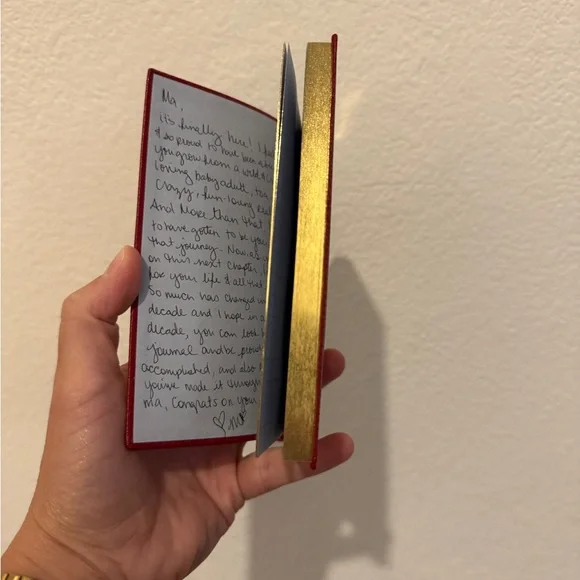 Ma,
it's finally here! I
& so proud to have been a
you grow from a wild &
loving baby adult, to a
crazy, fun-loving
And More than that
to have gotten to be your
that journey. Now, as
on this next chapter, I
for your life & all that
So much has changed
decade and I hope in a
decade, you can look
journal and be proud
accomplished, and also
you've made it through
ma, Congrats on your